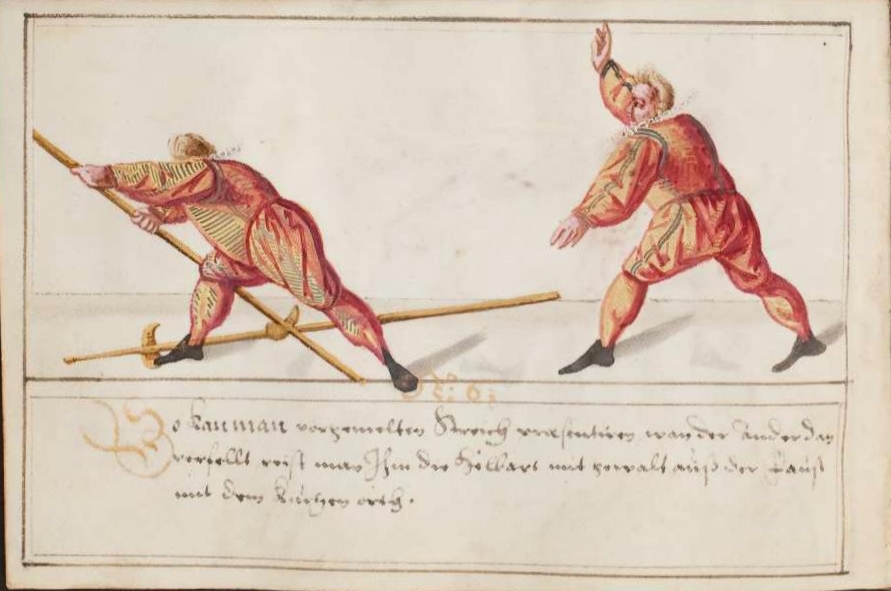 No: 61
So kan man vorgemelten Streich praesentiren wan der ander dan
verfellt reist man Ihm die Helbart mit gewalt auß der Faust
mit dem kurtzen orth.